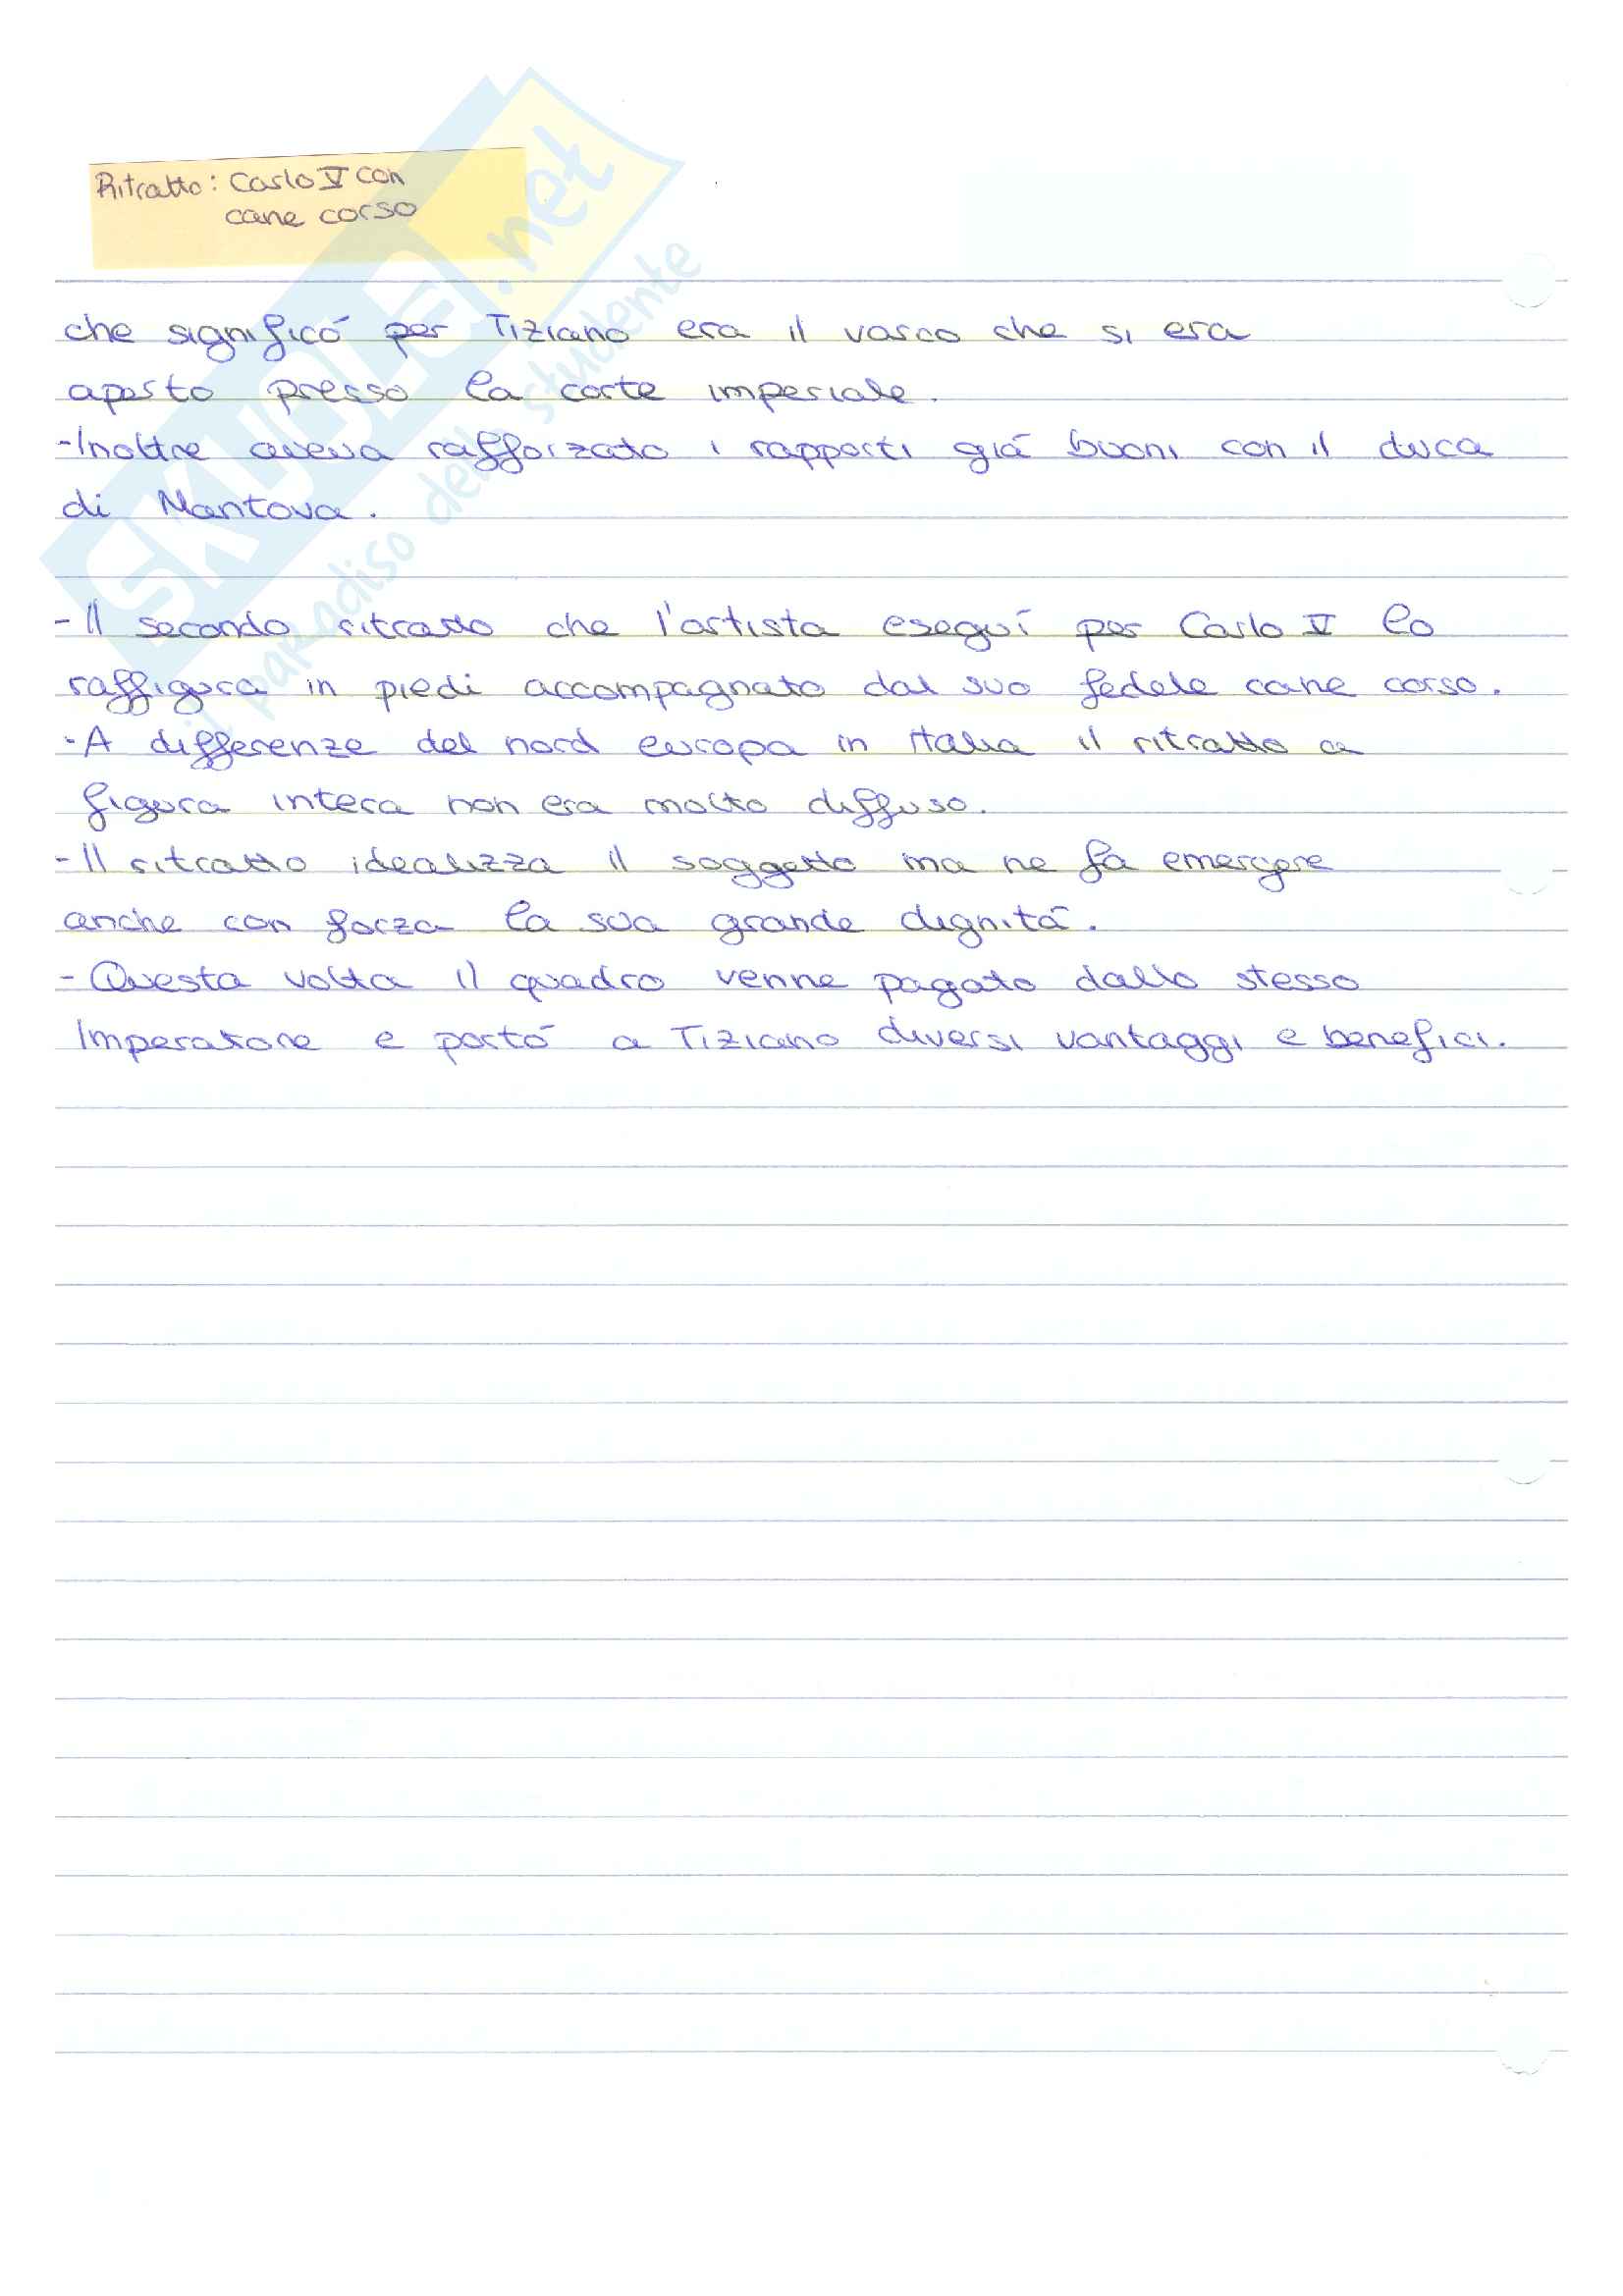 Ritratto: Carlo V con
cane corso
che significó per Tiziano era il varco che si era
aperto presso la corte imperiale.
-Inoltre aveva rafforzato i rapporti giá buoni con il duca
di Mantova.
- Il secondo ritratto che l'artista eseguí per Carlo V lo
raffigura in piedi accompagnato dal suo fedele cane corso.
- A differenze del nord europa in Italia il ritratto a
figura intera non era molto diffuso.
- Il ritratto idealizza il soggetto ma ne fa emergere
anche con forza la sua grande dignitá.
- Questa volta il quadro venne pagato dallo stesso
Imperatore e portó a Tiziano diversi vantaggi e benefici.
SKUOLA.net
il paradiso dello studente